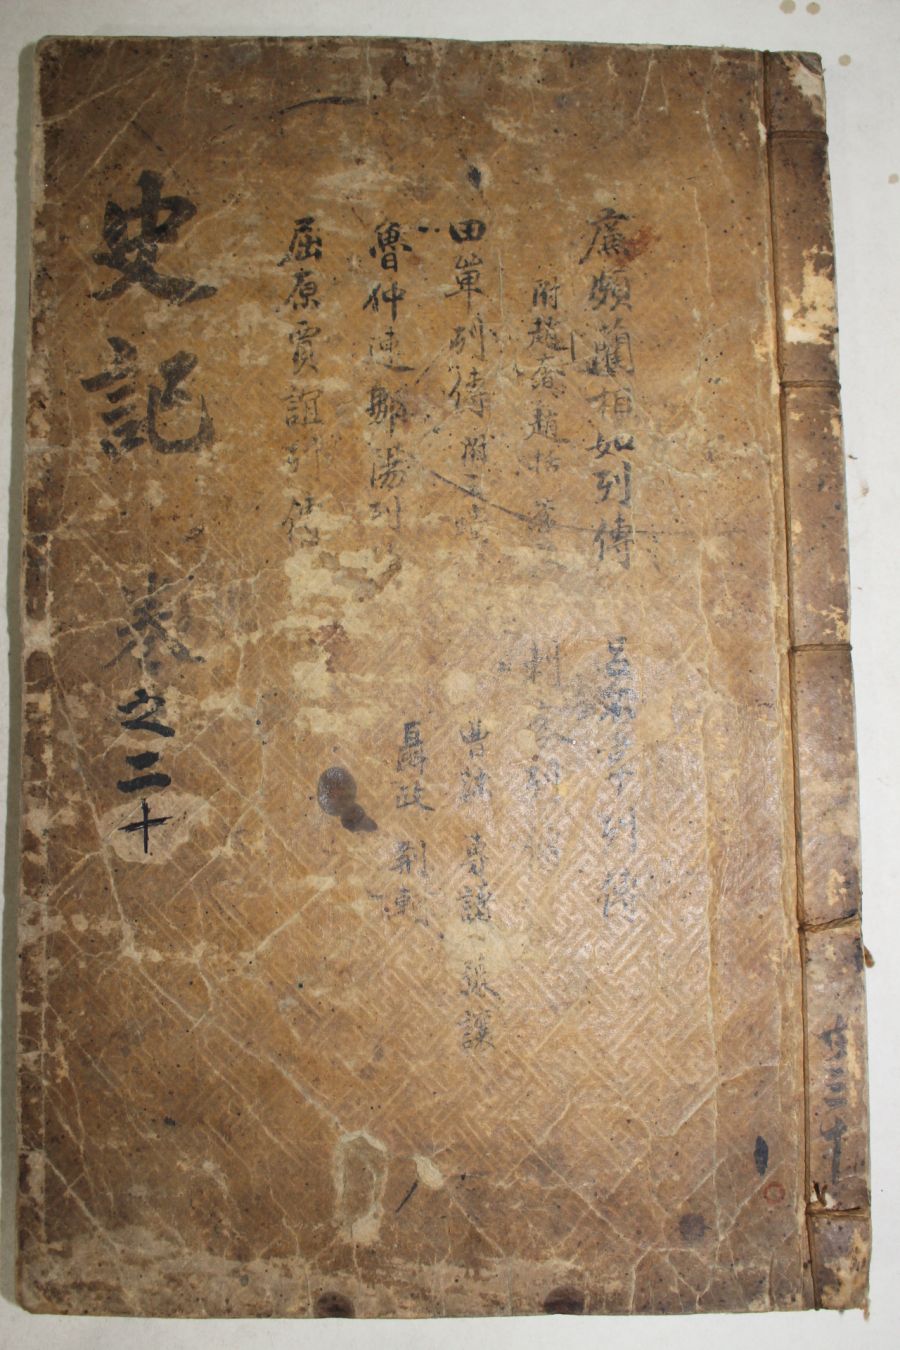 廉頗藺相如列傳
附趙奢 趙括
田單列傳 附王蠋
魯仲連鄒陽列
屈原賈誼列傳
呂不韋列傳
刺客列傳
曹沫 專諸 張讓
聶政 荊軻
史記 卷之二十
共三十